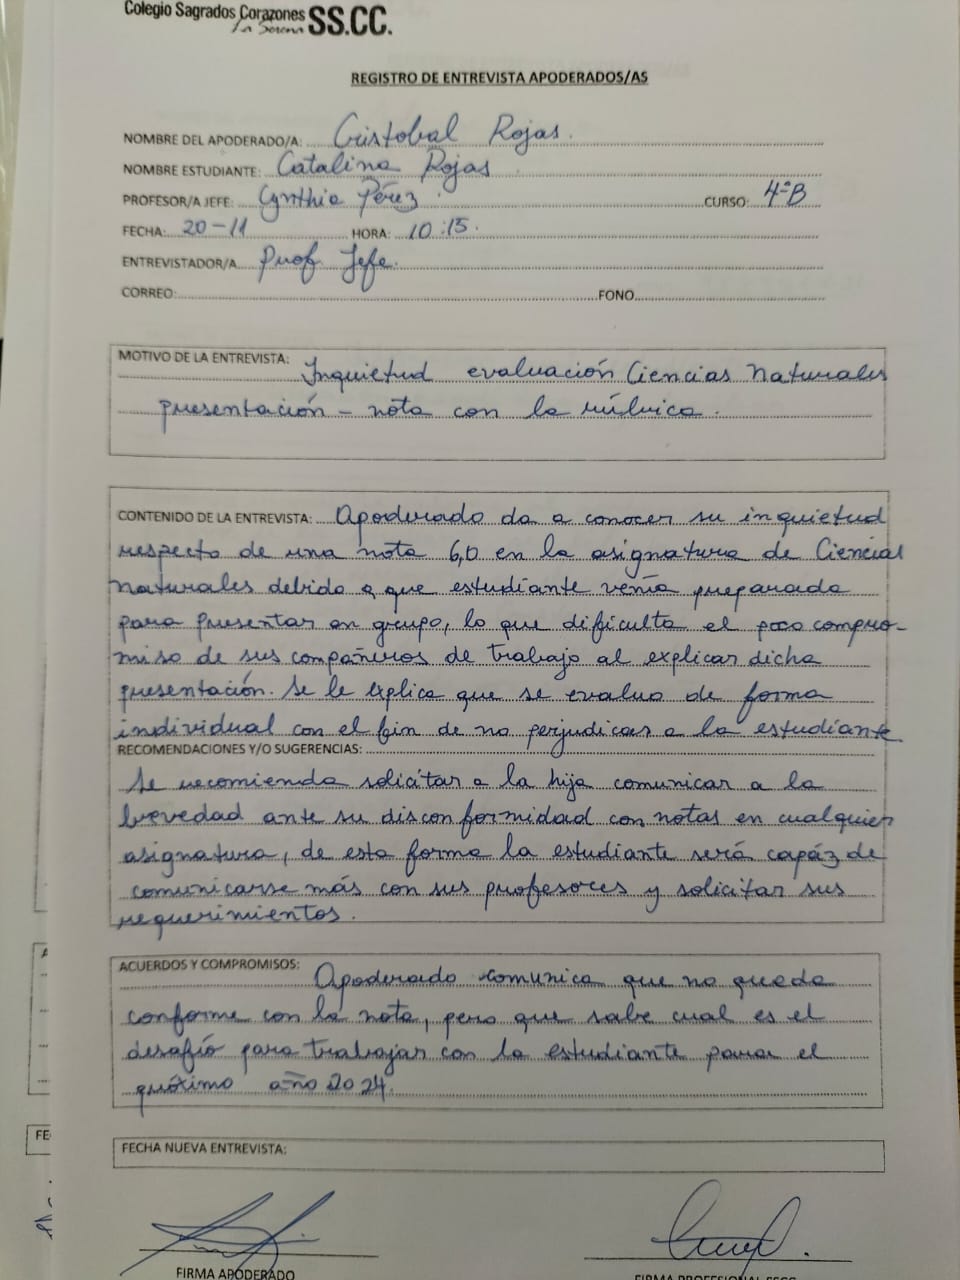 Colegio Sagrados Corazones
La Serena SS.CC.
REGISTRO DE ENTREVISTA APODERADOS/AS
NOMBRE DEL APODERADO/A: Cristobal Rojas.
NOMBRE ESTUDIANTE: Catalina Rojas
PROFESOR/A JEFE: Cynthia Pérez CURSO: 4°B
FECHA: 20-11 HORA: 10:15.
ENTREVISTADOR/A Prof Jefe.
CORREO: FONO
MOTIVO DE LA ENTREVISTA: Inquietud evaluación Ciencias Naturales
presentación - nota con la rúbrica.
CONTENIDO DE LA ENTREVISTA: Apoderado da a conocer su inquietud
respecto de una nota 6,0 en la asignatura de Ciencias
Naturales debido a que estudiante venía preparada
para presentar en grupo, lo que dificulta el poco compro-
miso de sus compañeros de trabajo al explicar dicha
presentación. Se le explica que se evaluo de forma
individual con el fin de no perjudicar a la estudiante
RECOMENDACIONES Y/O SUGERENCIAS:
Se recomienda solicitar a la hija comunicar a la
brevedad ante su disconformidad con notas en cualquier
asignatura, de esta forma la estudiante será capáz de
comunicarse más con sus profesores y solicitar sus
requerimientos.
ACUERDOS Y COMPROMISOS: Apoderado comunica que no queda
conforme con la nota, pero que sabe cual es el
desafío para trabajar con la estudiante para el
próximo año 2024.
FECHA NUEVA ENTREVISTA:
FIRMA APODERADO FIRMA PROFESIONAL SSCC
FE